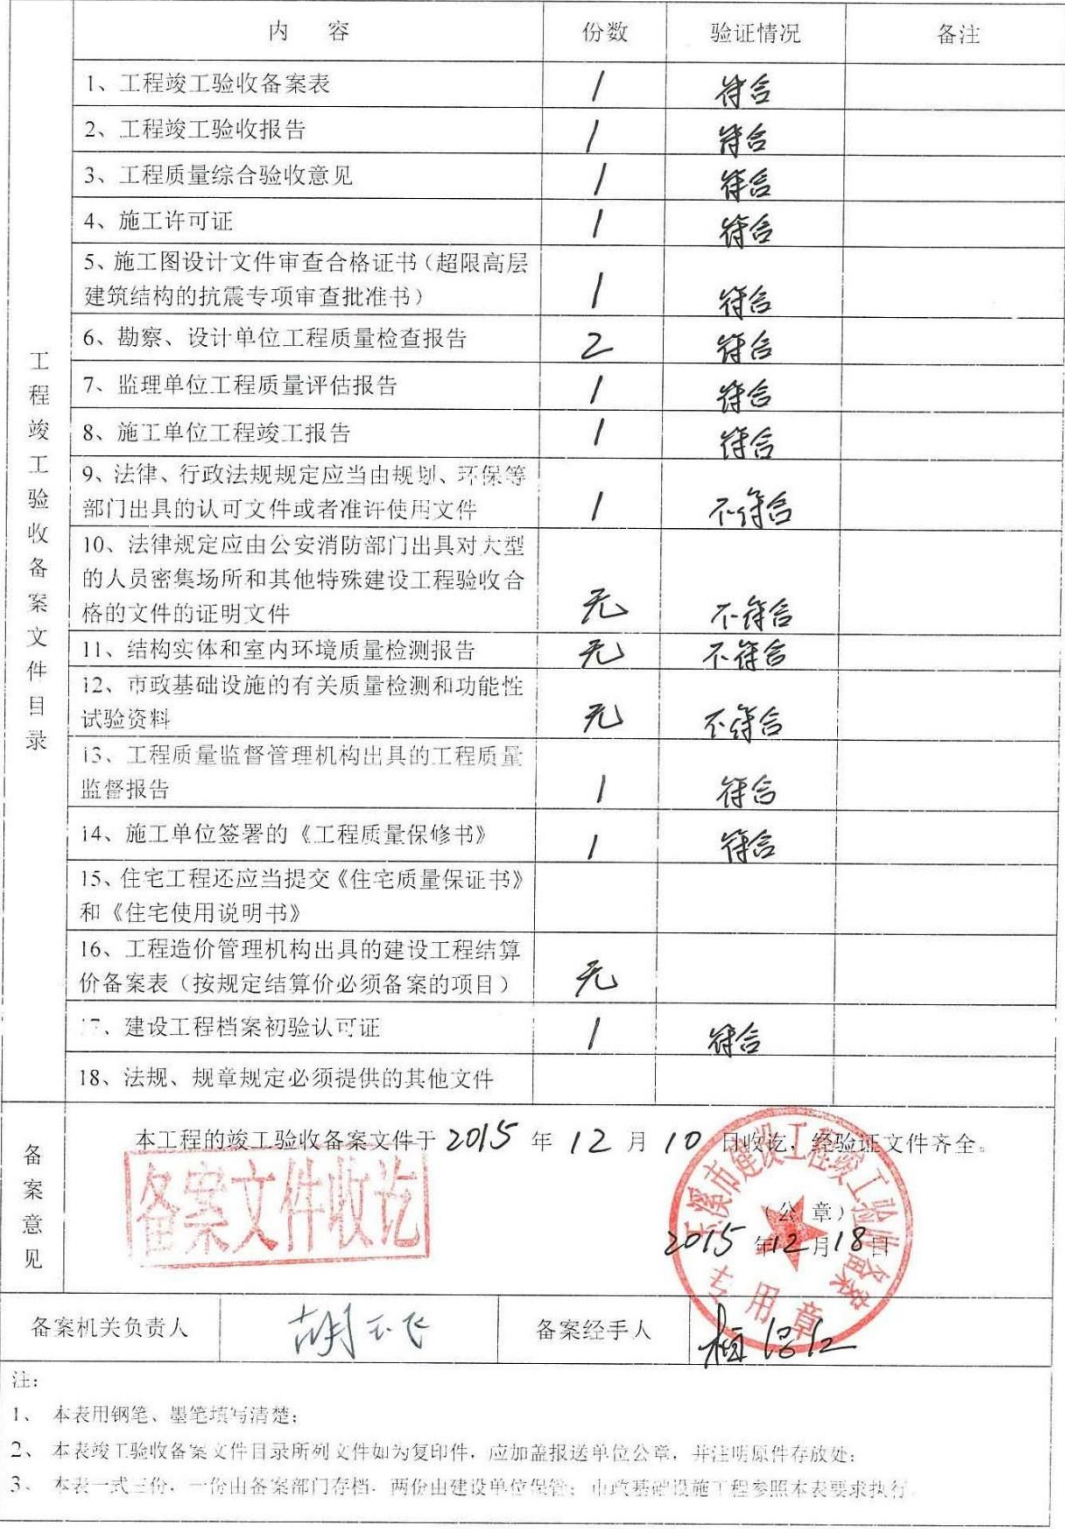 内 容 份数 验证情况 备注
1、工程竣工验收备案表 1 符合
2、工程竣工验收报告 1 符合
3、工程质量综合验收意见 1 符合
4、施工许可证 1 符合
5、施工图设计文件审查合格证书（超限高层
建筑结构的抗震专项审查批准书） 1 符合
6、勘察、设计单位工程质量检查报告 2 符合
7、监理单位工程质量评估报告 1 符合
8、施工单位工程竣工报告 1 符合
9、法律、行政法规规定应当由规划、环保等
部门出具的认可文件或者准许使用文件 1 不符合
10、法律规定应由公安消防部门出具对大型
的人员密集场所和其他特殊建设工程验收合
格的文件的证明文件 无 不符合
11、结构实体和室内环境质量检测报告 无 不符合
12、市政基础设施的有关质量检测和功能性
试验资料 无 不符合
13、工程质量监督管理机构出具的工程质量
监督报告 1 符合
14、施工单位签署的《工程质量保修书》 1 符合
15、住宅工程还应当提交《住宅质量保证书》
和《住宅使用说明书》
16、工程造价管理机构出具的建设工程结算
价备案表（按规定结算价必须备案的项目） 无
17、建设工程档案初验认可证 1 符合
18、法规、规章规定必须提供的其他文件
工程竣工验收备案文件目录
备案意见
本工程的竣工验收备案文件于 2015 年 12 月 10 日收讫，经验证文件齐全。
备案文件收讫
溪市建设工程竣工验收备案
专用章
（公 章）
2015 年12月18日
备案机关负责人 胡 飞 备案经手人
注：
1、 本表用钢笔、墨笔填写清楚；
2、 本表竣工验收备案文件目录所列文件如为复印件，应加盖报送单位公章，并注明原件存放处；
3、 本表一式三份，一份由备案部门存档，两份由建设单位保管；市政基础设施工程参照本表要求执行。